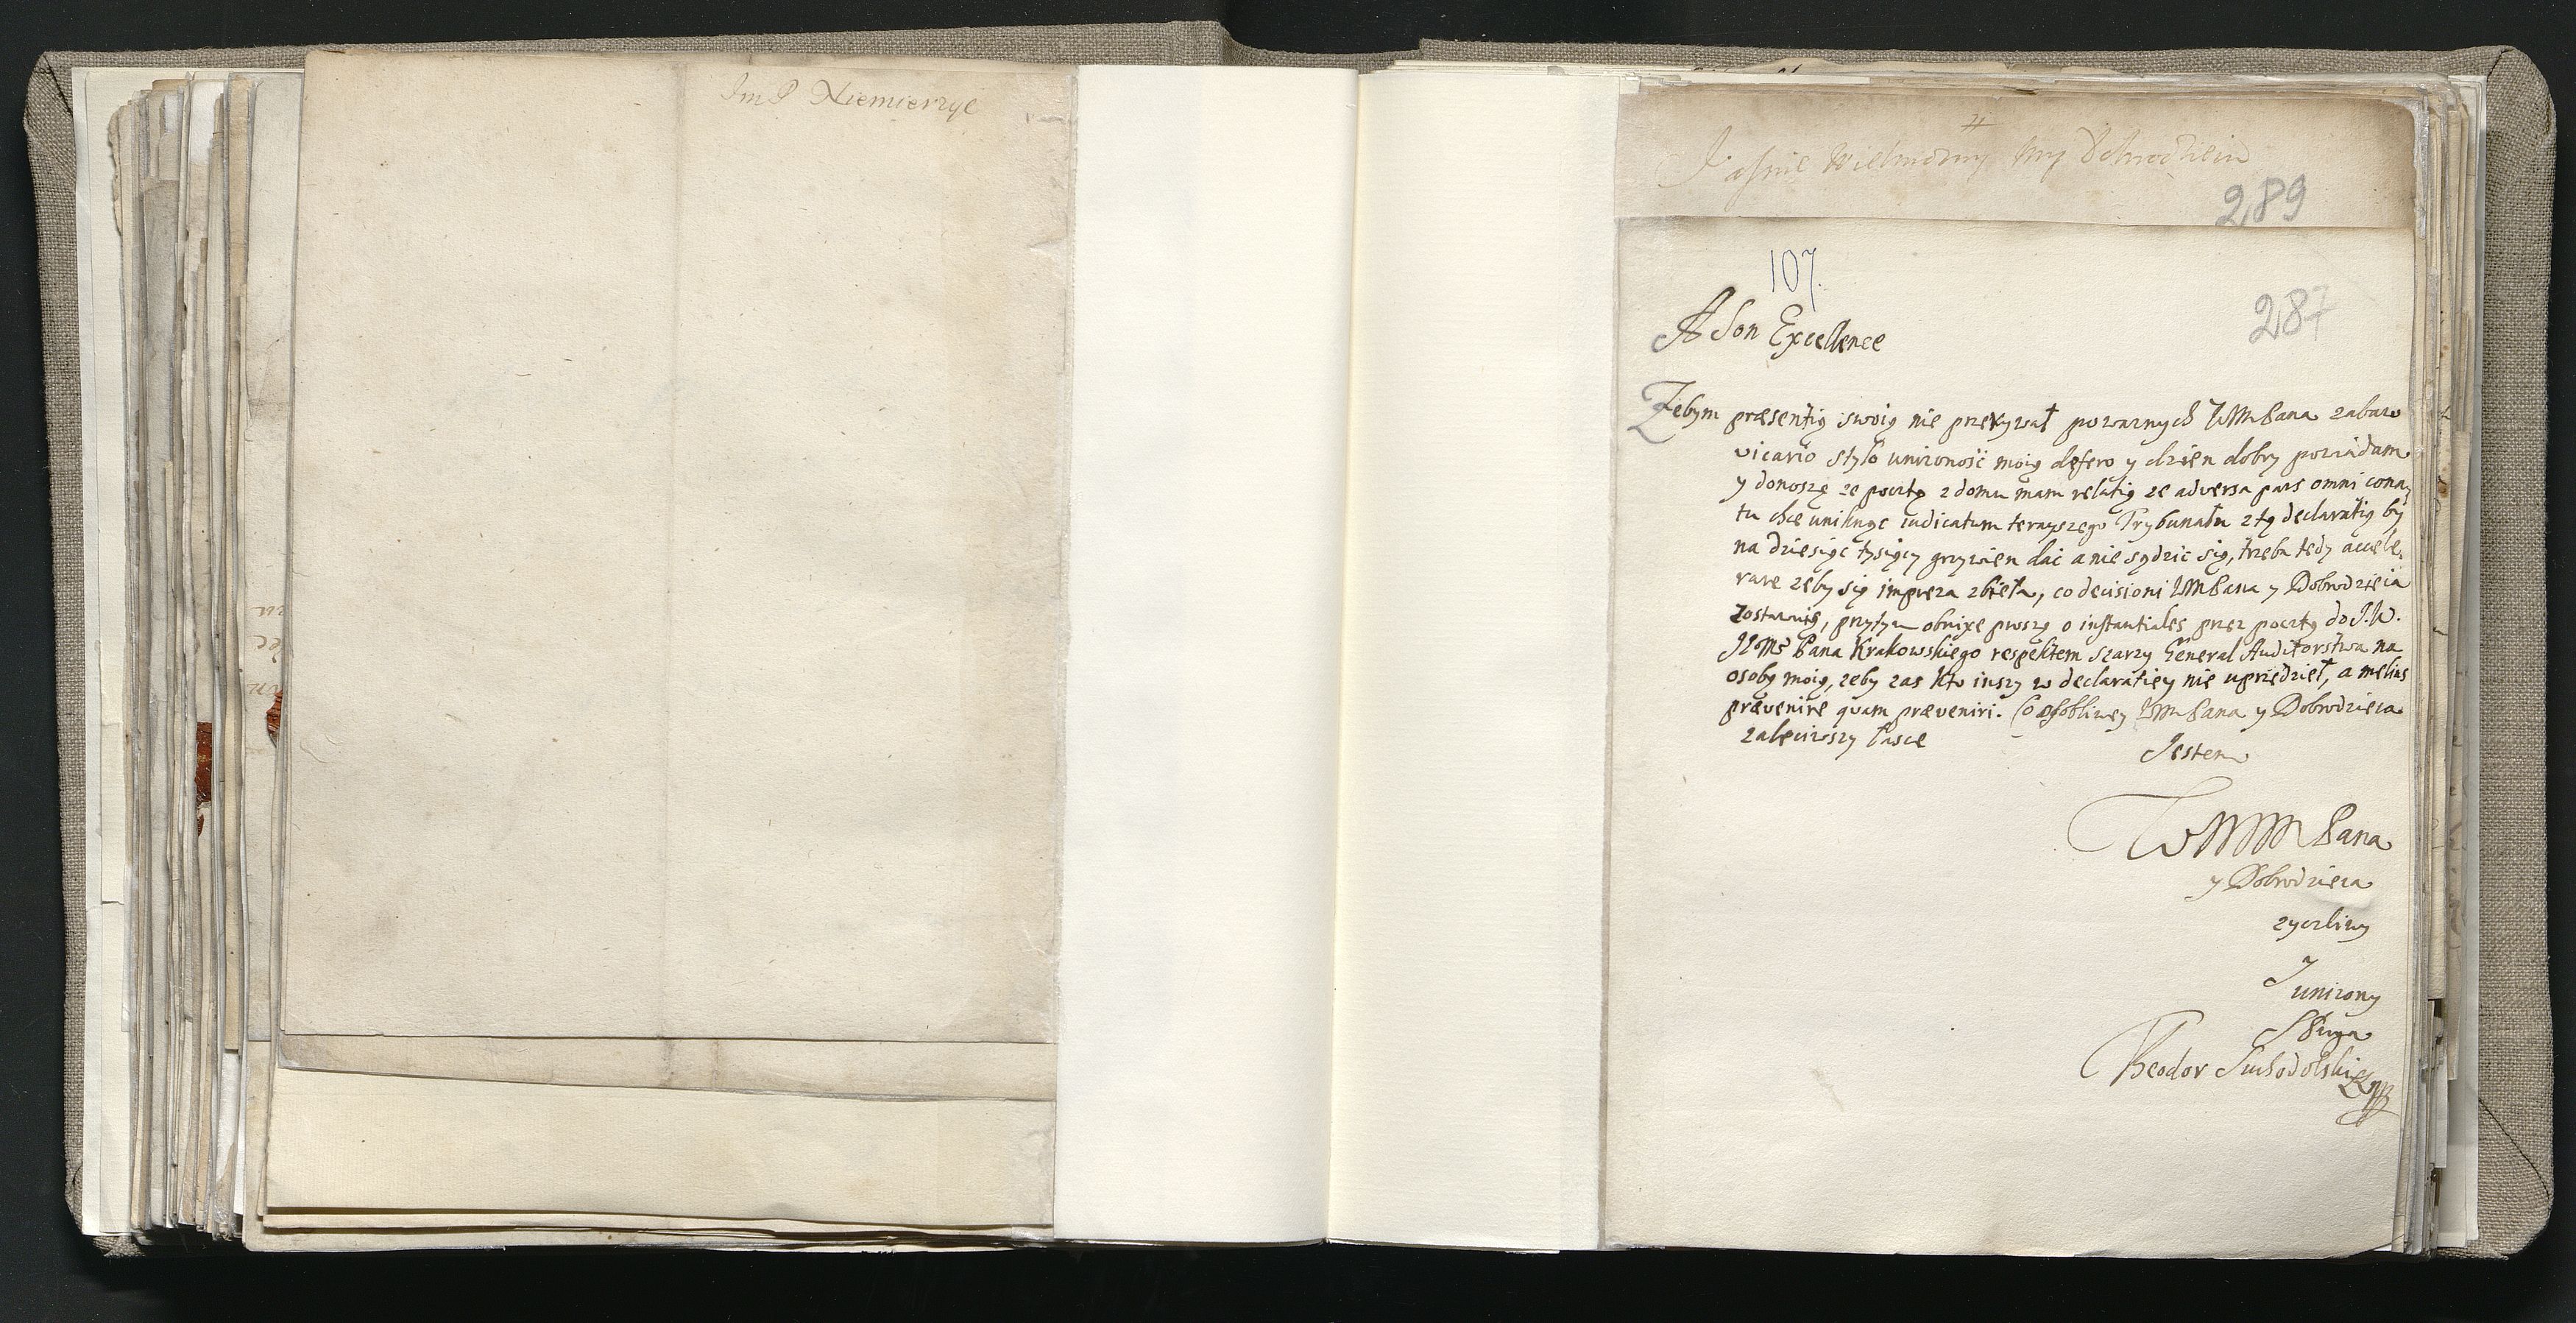 Jm P Niemierzyc
Jasnie Wielmozny Mnj Dobrodzieiu
289
107.
287
A Son Excellence
Zebym præsentią swoią nie przerywał powaznych WMPana zabaw
vicario stylo unizoność moią defero y dzien dobry powiadam
y donoszę ze pocztą z domu mam relatią ze adversa pars omni cona,
tu chce uniknąc iudicatum terazszego Trybunału z tą declaratią by
na dziesięc tysięcy grzywien dac a nie sądzic się, trzeba tedy accele,
rare zeby się impreza zbieła, co decisioni WMPana y Dobrodzieia
zostawię, przytym obnixe proszę o instantiales przez pocztę do J.W.
JEoMs Pana Krakowskiego respektem szarzy General Auditorstwa na
osobę moię, zeby zas kto inszy w declaratiey nie uprzedzieł, a melius
prævenire quam præveniri. Co osobliwey WMPana y Dobrodzieia
zaleciwszy łasce
Jestem
WMMPana
y Dobrodzieia
zyczliwy
J unizony
Sługa
Theodor Suchodolski